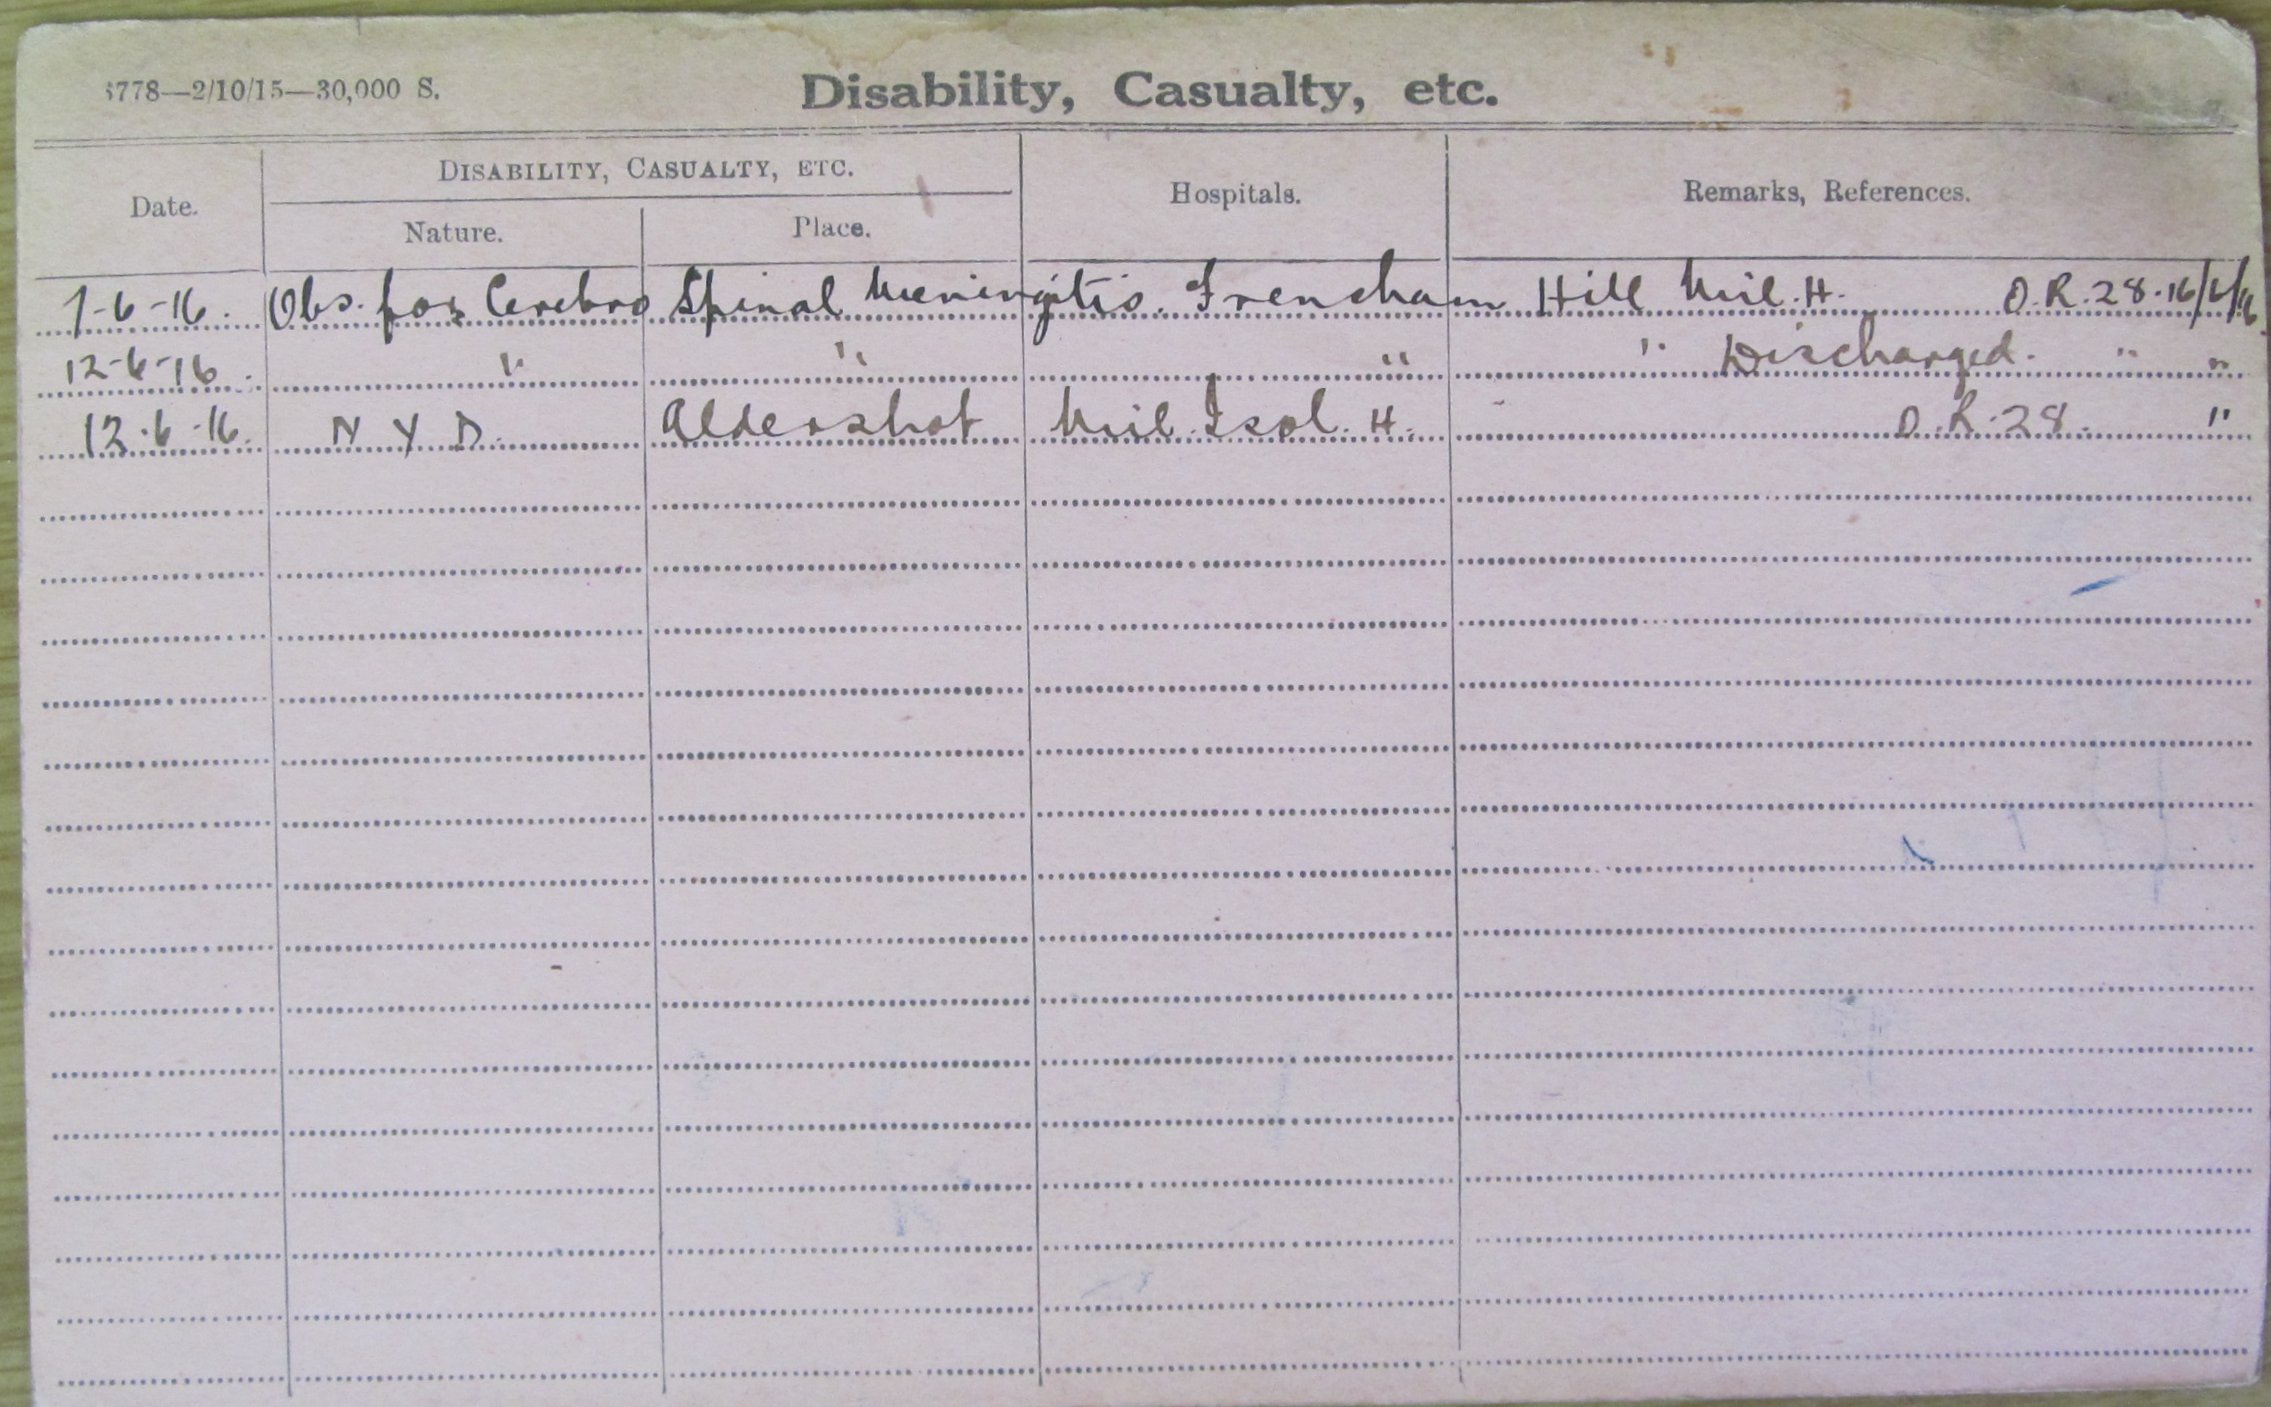 3778—2/10/15—30,000 S.
Disability, Casualty, etc.
Date.
DISABILITY, CASUALTY, ETC.
Nature.
Place.
Hospitals.
Remarks, References.
7-6-16. Obs. for Cerebro Spinal Meningitis. Frensham Hill Mil. H. O.R. 28-16/6/16
12-6-16. " " " " Discharged. " "
12-6-16. N Y D. Aldershot Mil. Isol. H. O.R. 28. "